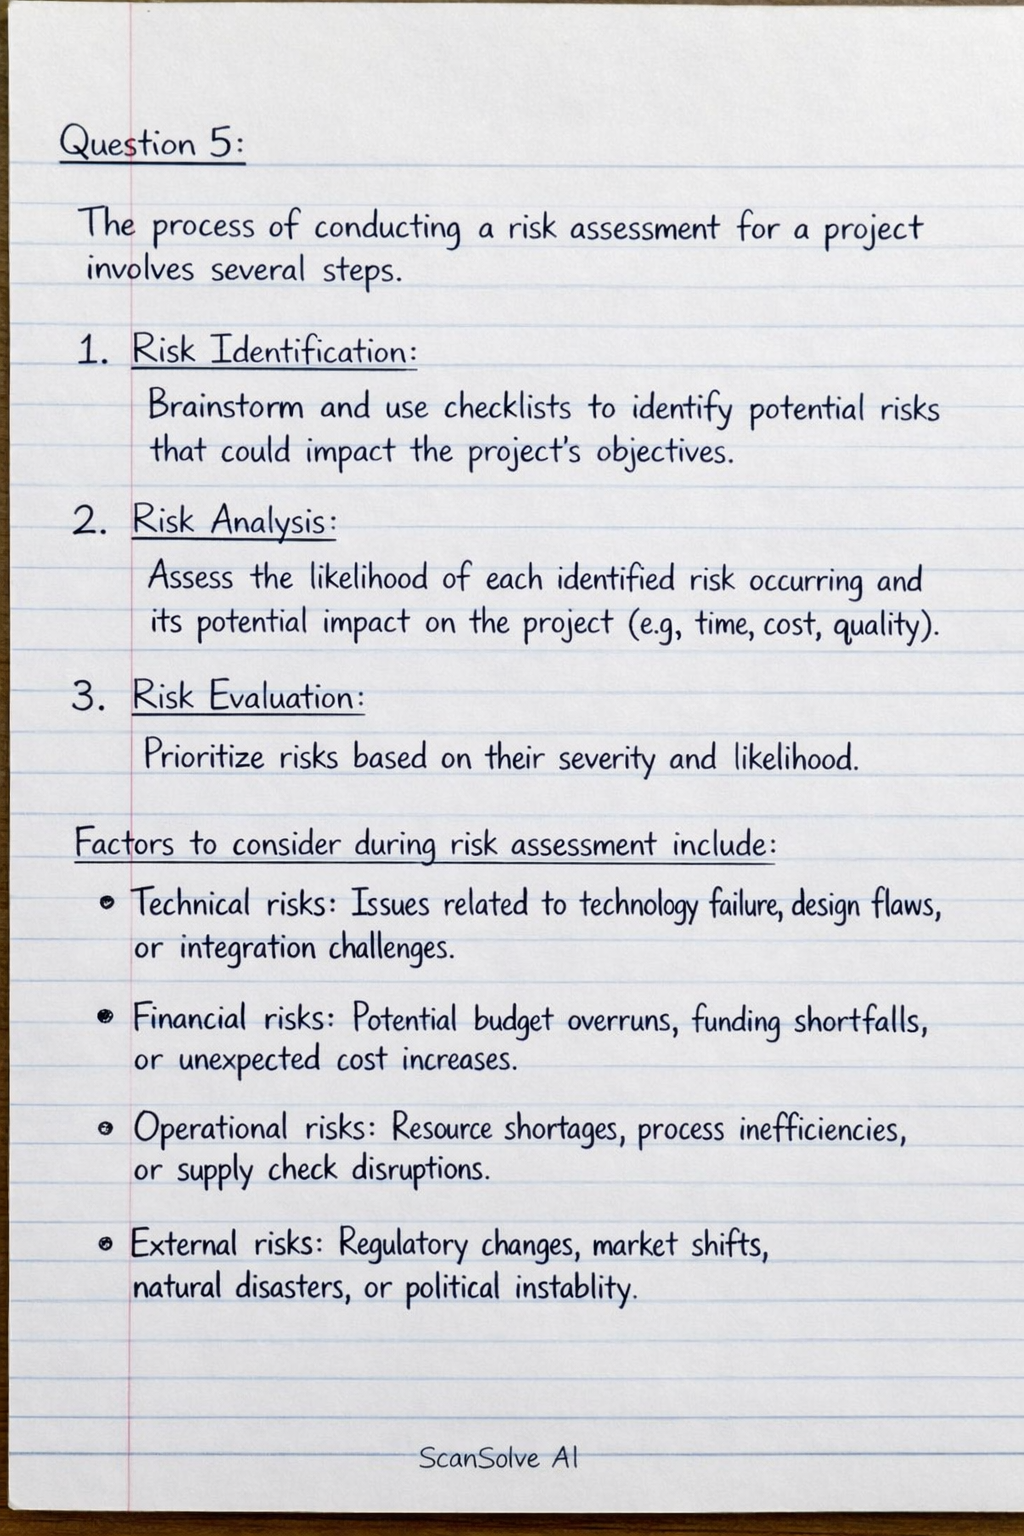 Question 5:
The process of conducting a risk assessment for a project
involves several steps.
1. Risk Identification:
Brainstorm and use checklists to identify potential risks
that could impact the project's objectives.
2. Risk Analysis:
Assess the likelihood of each identified risk occurring and
its potential impact on the project (e.g, time, cost, quality).
3. Risk Evaluation:
Prioritize risks based on their severity and likelihood.
Factors to consider during risk assessment include:
• Technical risks: Issues related to technology failure, design flaws,
or integration challenges.
• Financial risks: Potential budget overruns, funding shortfalls,
or unexpected cost increases.
• Operational risks: Resource shortages, process inefficiencies,
or supply check disruptions.
• External risks: Regulatory changes, market shifts,
natural disasters, or political instablity.
ScanSolve AI